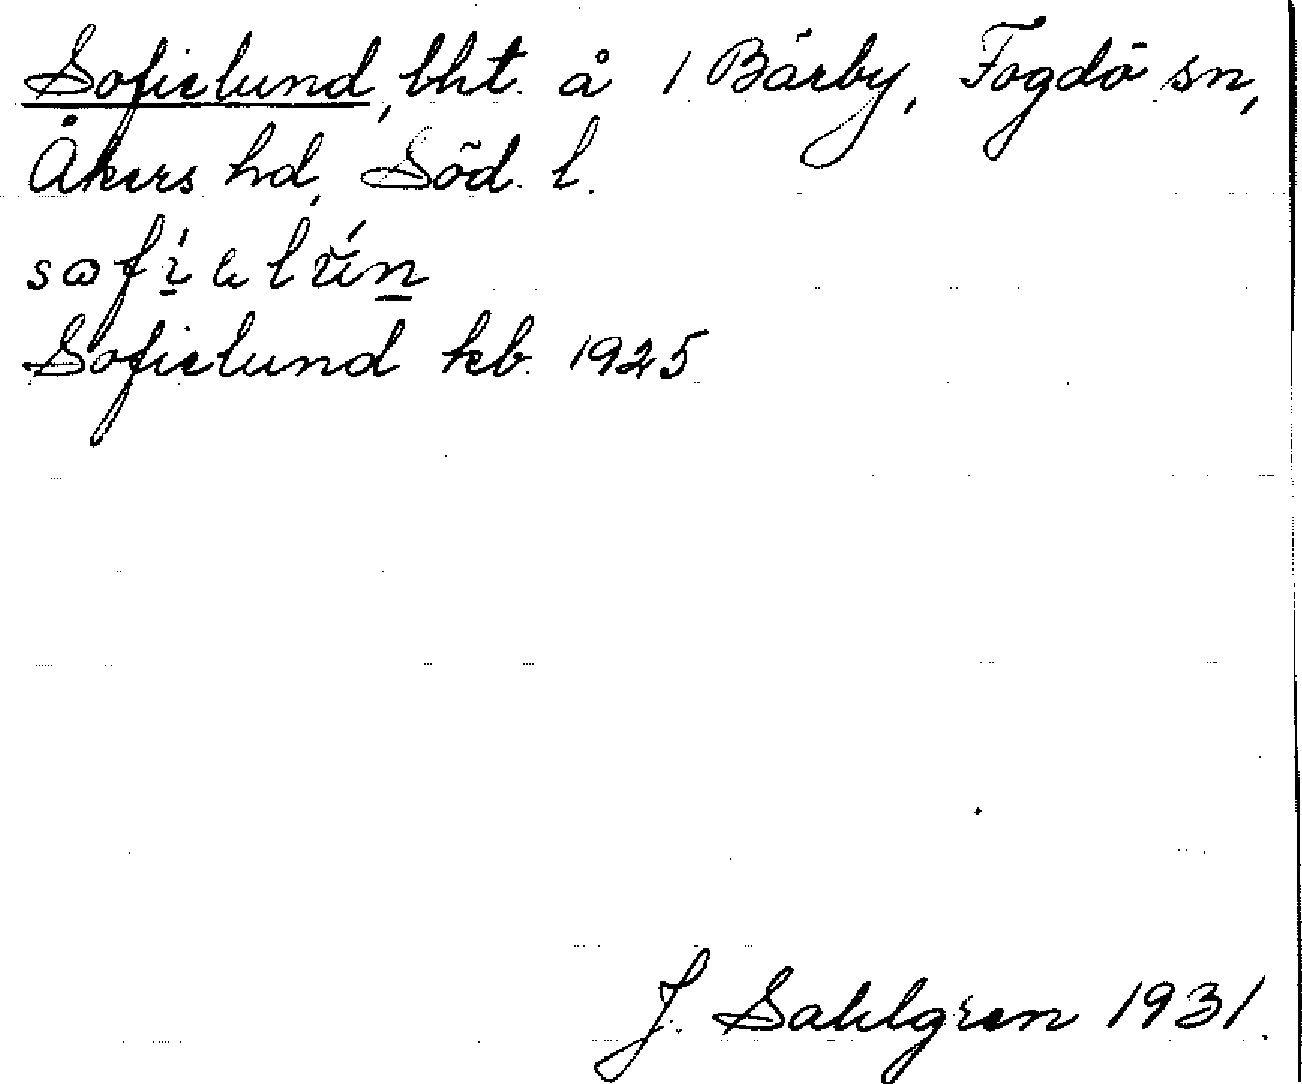 Sofielund, lht. å 1 Bärby, Fogdö sn,
Åkers hd, Söd. l.
Sofielund kb. 1925
J. Sahlgren 1931.